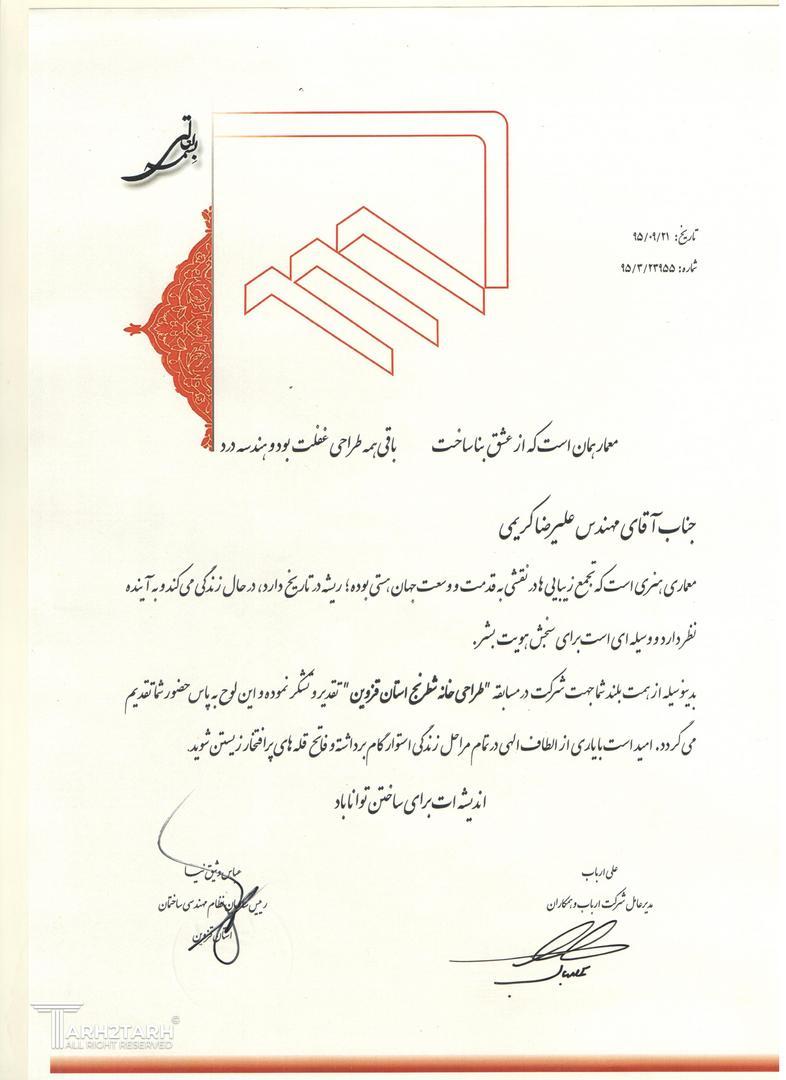 بسمه تعالی
تاریخ: ۹۵/۰۹/۲۱
شماره: ۹۵/۳/۲۳۹۵۵
معمار همان است که از عشق بنا ساخت باقی همه طراحی غفلت بود و هندسه درد
جناب آقای مهندس علیرضا کریمی
معماری هنری است که تجمع زیبایی ها در نقشی به قدمت و وسعت جهان هستی بوده؛ ریشه در تاریخ دارد، در حال زندگی می کند و به آینده
نظر دارد و وسیله ای است برای سنجش هویت بشر.
بدینوسیله از همت بلند شما جهت شرکت در مسابقه "طراحی خانه شطرنج استان قزوین" تقدیر و تشکر نموده و این لوح به پاس حضور شما تقدیم
می گردد. امید است با یاری از الطاف الهی در تمام مراحل زندگی استوار گام برداشته و فاتح قله های پر افتخار زیستن شوید.
اندیشه ات برای ساختن توانا باد
علی ارباب
مدیر عامل شرکت ارباب و همکاران
عباس وثیق نیا
رییس سازمان نظام مهندسی ساختمان
استان قزوین
TARH2TARH©
ALL RIGHT RESERVED